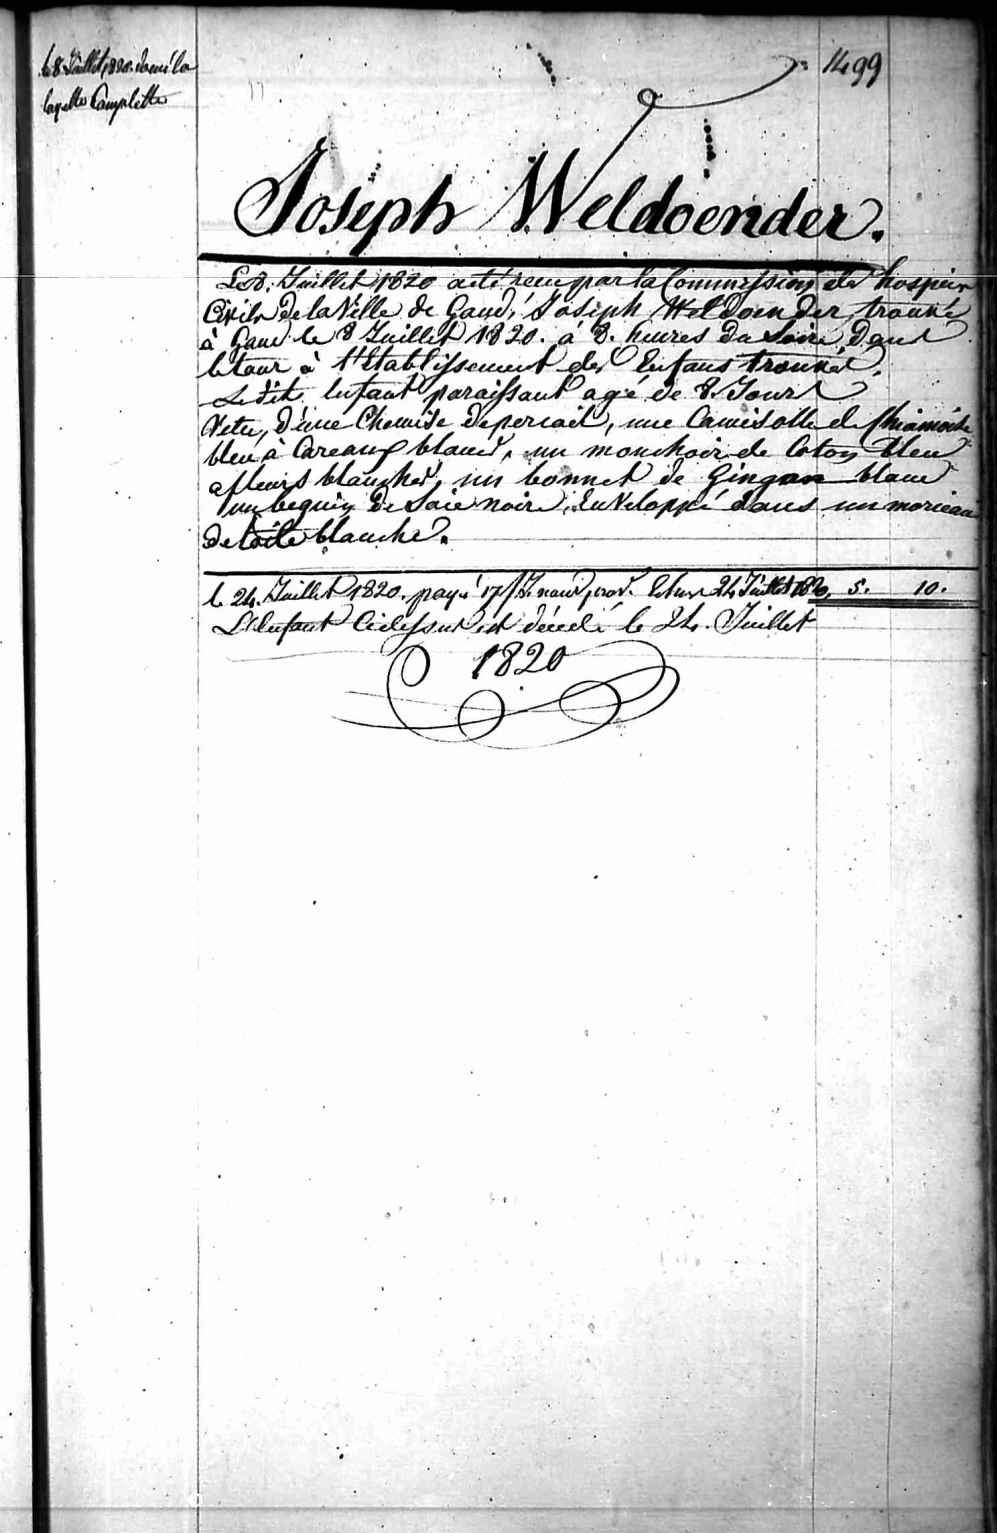 le 8 Juillet 1820. donné la
layette Complette
1499
Joseph Weldoender.
Le 8. Juillet 1820 a eté reçu par la Commission des hospices
Civils de la Ville de Gand, Joseph Weldoender, trouvé
à Gand le 8 Juillet 1820. à 8. heures du Soire, Dans
le tour à l'Etablissement des Enfans trouvés.
Le dit enfant paraissant agé de 8. Jours
Vetu, d'une Chemise de percail, une Camisolle de
bleu à Careaux blancs, un mouchoir de Coton bleu
a fleurs blanches, un bonnet de Gingan blanc
un beguin De Soie noire, Enveloppé dans un morceau
de toile blanche.
le 24. Juillet 1820. payé 17 24 Juillet 1820, 5. 10.
L'Enfant Cidessus est décédé le 24. Juillet
1820